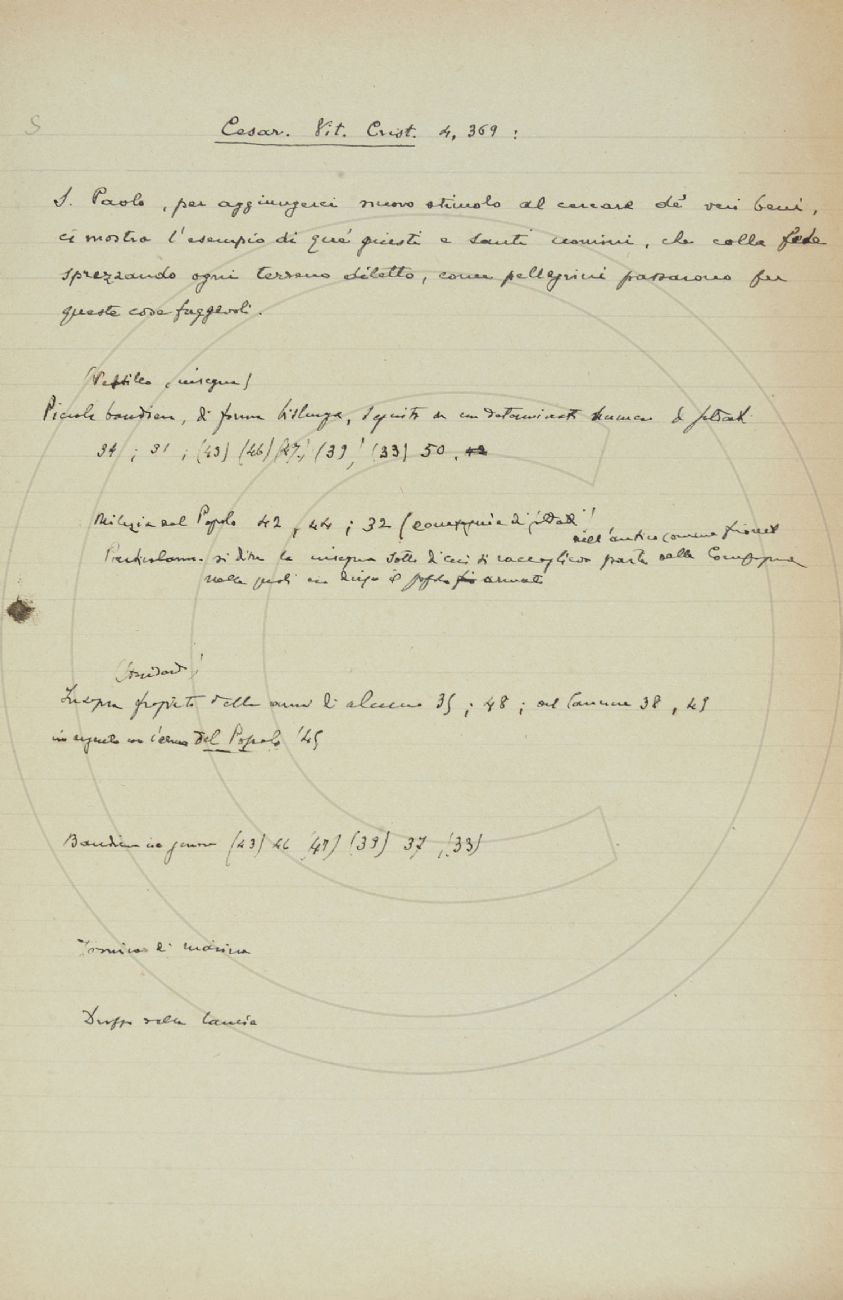 S
Cesar. Vit. Crist. 4, 369 :
S. Paolo, per aggiungerci nuovo stimolo al cercare de' veri beni,
ci mostra l'esempio di que' giusti e santi uomini, che colla fede
sprezzando ogni terreno diletto, come pellegrini passarono per
queste cose fuggevoli.
(Vessillo, insegna)
Piccola bandiera, di forma bislunga, seguita da un determinato numero di soldati
34 ; 31 ; (43) (46) (47) (39) (33) 50.
Milizia del Popolo 42, 44 ; 32 (compagnia di soldati)
nell'antico comune
Particolarm. si disse la insegna sotto di cui si raccoglieva parte della Compagnia
nelle quali era diviso il popolo armato
(Stendardo)
Insegna propria delle armi di alcuno 35 ; 48 ; del Comune 38, 49
in segnato con l'arme del Popolo 45
Bandiera in genere (43) 46 (47) (39) 37, (33)
di marina
Drappo della lancia